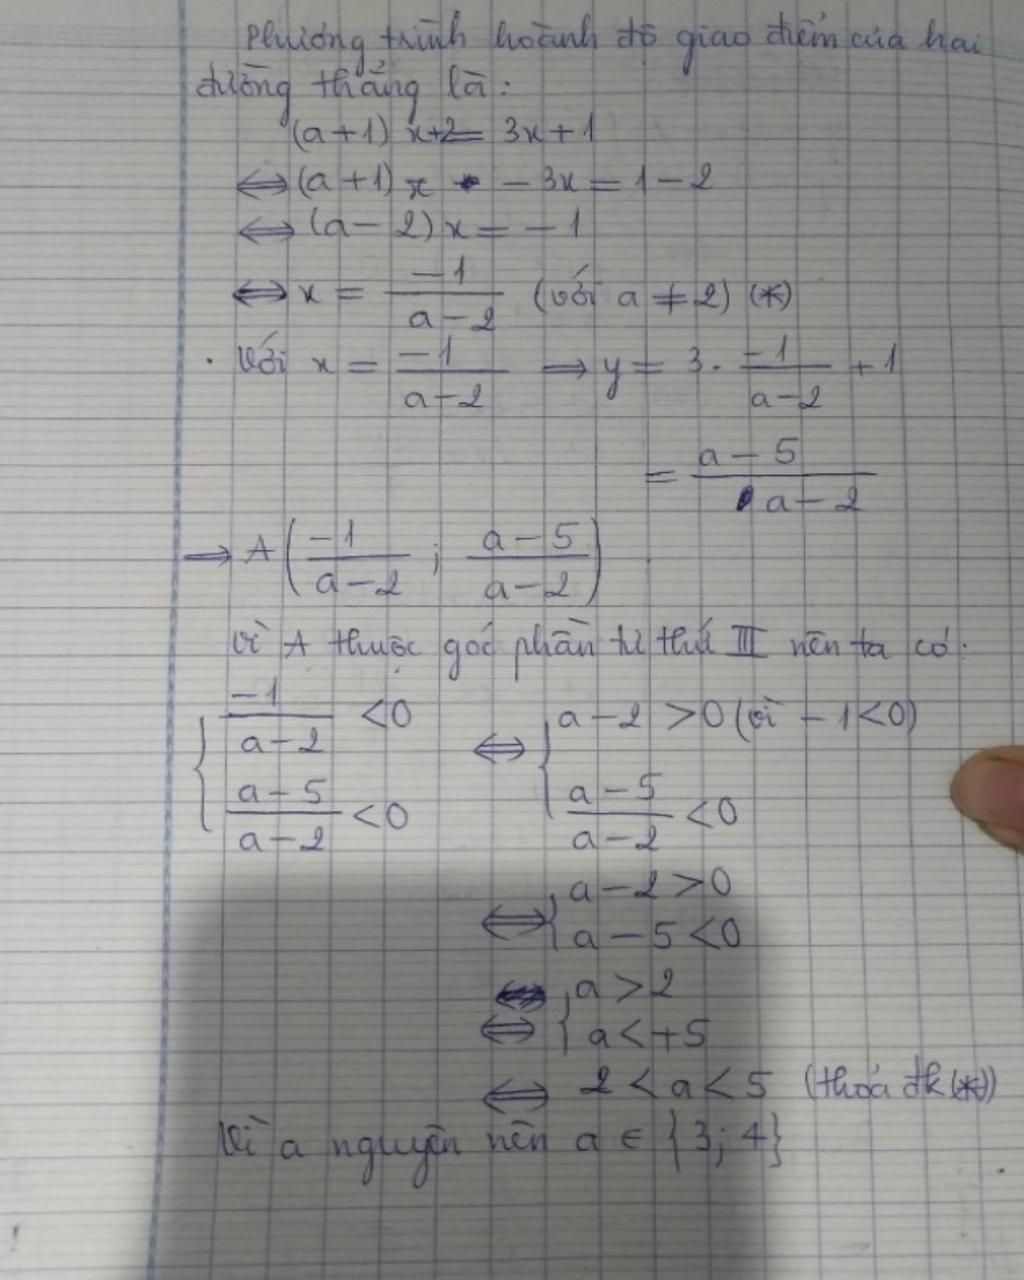 Phương trình hoành độ giao điểm của hai
đường thẳng là:
(a+1) x+2 = 3x+1
⟺ (a+1) x - 3x = 1-2
⟺ (a-2) x = -1
⟺ x = -1/(a-2) (với a ≠ 2) (*)
. Với x = -1/(a-2) ⟹ y = 3 . -1/(a-2) + 1
= (a-5)/(a-2)
⟹ A(-1/(a-2) ; (a-5)/(a-2))
Vì A thuộc góc phần tư thứ III nên ta có:
{ -1/(a-2) < 0 ⟺ { a-2 > 0 (vì -1 < 0)
(a-5)/(a-2) < 0 (a-5)/(a-2) < 0
⟺ { a-2 > 0
a-5 < 0
a > 2
⟺ { a < +5
⟺ 2 < a < 5 (thoả đk (*))
Vì a nguyên nên a ∈ {3; 4}